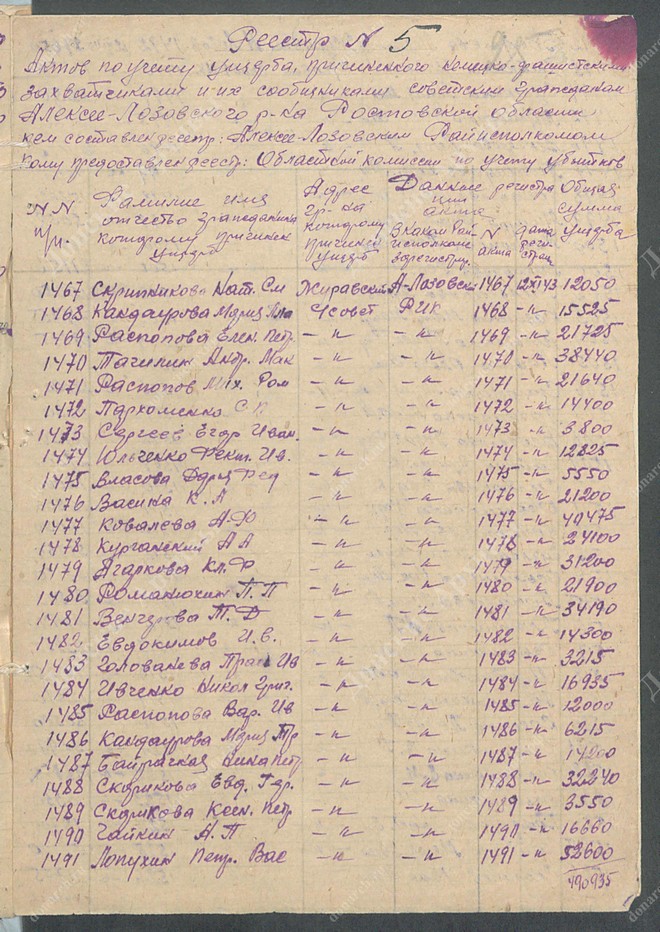 Реестр № 5
Актов по учету ущерба, причиненного немецко-фашистскими
захватчиками и их сообщниками советским гражданам
Алексее-Лозовского р-ка Ростовской области
кем составлен реестр: Алексее-Лозовским Райисполкомом
кому предоставлен реестр: Областной комиссии по учету убытков
N.N п/п. Фамилие имя отчество гражданина которому причинен ущерб Адрес гр-ка которому причинен ущерб Данные регистрации акта В каком Райисполкоме зарегистрир. N акта дата регистрац Общая сумма ущерба
1467 Скрипникова Нат. Сем Журавский А-Лозовский 1467 12/XI 43 12050
1468 Кандаурова Мария С/совет РИК 1468 -"- 15525
1469 Распопова Елен. Петр. -"- -"- 1469 -"- 21725
1470 Тачилин Андр. Мак -"- -"- 1470 -"- 38440
1471 Распопов Мих. Ром -"- -"- 1471 -"- 21640
1472 Пархоменко С П -"- -"- 1472 -"- 14400
1473 Сергеев Егор Иван. -"- -"- 1473 -"- 3800
1474 Ильченко Фекл. Ив. -"- -"- 1474 -"- 12825
1475 Власова Дарья Фед -"- -"- 1475 -"- 5550
1476 Васина К. А -"- -"- 1476 -"- 21200
1477 Ковалева А. Ф -"- -"- 1477 -"- 40475
1478 Курганский А А -"- -"- 1478 -"- 24100
1479 Агаркова Кл. Ф -"- -"- 1479 -"- 31200
1480 Романюхин П. П -"- -"- 1480 -"- 21900
1481 Венгерова Т. Д -"- -"- 1481 -"- 34190
1482 Евдокимов И. В. -"- -"- 1482 -"- 14300
1483 Голованева Прас Ив -"- -"- 1483 -"- 3215
1484 Ивченко Никол Григ. -"- -"- 1484 -"- 16935
1485 Распопова Вар. Ив -"- -"- 1485 -"- 12000
1486 Кандаурова Мария Тр -"- -"- 1486 -"- 6215
1487 Байрачная Нина Петр -"- -"- 1487 -"- 14200
1488 Скорикова Евд. Гар. -"- -"- 1488 -"- 32240
1489 Скорикова Ксен. Петр -"- -"- 1489 -"- 3550
1490 Чайкин А. П -"- -"- 1490 -"- 16660
1491 Лопухин Петр. Вас -"- -"- 1491 -"- 52600
490935